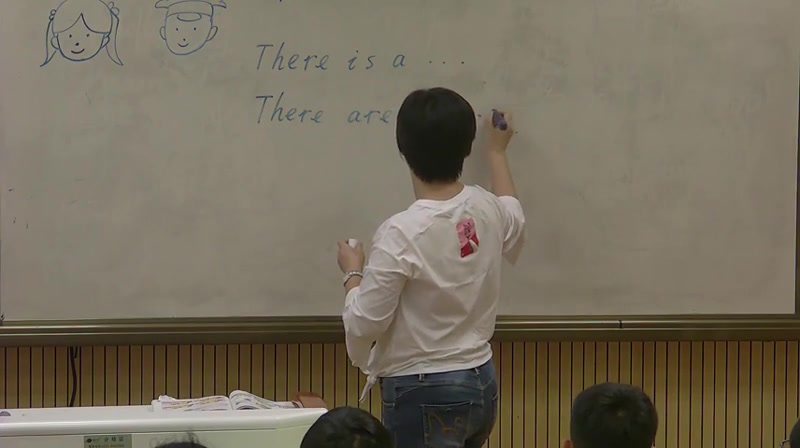 There is a ....
There are